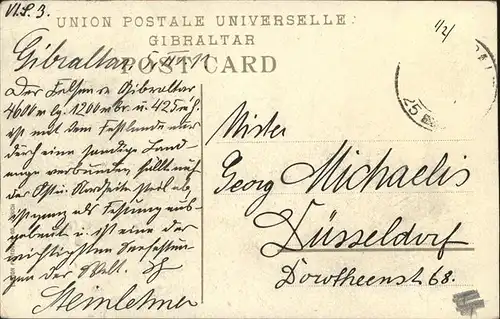 N.S. 3.
1/2/
UNION POSTALE UNIVERSELLE.
GIBRALTAR
POST CARD
Gibraltar,
Der Felsen v. Gibraltar
4600 m lg. 1200 m br. u. 425 m h.
ist mit dem Festlande nur
durch eine sandige Land
enge verbunden fällt auf
der Ost u. Nordseite steil ab
ist ganz als Festung aus-
gebaut u. ist eine der
wichtigsten Seefestun-
gen der Welt.
Steinlehner
Mister
Georg Michaelis
Düsseldorf
Dorotheenst 68.
25